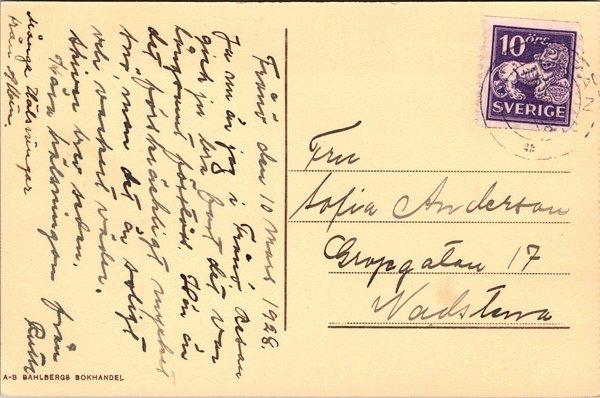 Tranö den 10 Mars 1928.
Ja nu är jag i Tranö. Resan
gick ju bra fast det var
långsamt förstås. Här är
det förskräckligt mycket
snö, men det är soligt
och vackert väder.
Skriver brev sedan.
Kära hälsningen från
Ruth
Många Hälsningar
från
10 ÖRE
SVERIGE
Fru
Sofia Anderson
Gropgatan 17
Wadstena
A-B DAHLBERGS BOKHANDEL